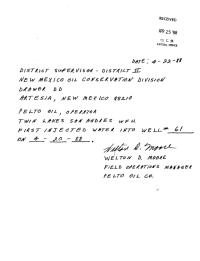 RECEIVED
APR 25 '88
O. C. D.
ARTESIA, OFFICE
DATE: 4-22-88
DISTRICT SUPERVISOR - DISTRICT II
NEW MEXICO OIL CONSERVATION DIVISION
DRAWER DD
ARTESIA, NEW MEXICO 88210
PELTO OIL, OPERATOR
TWIN LAKES SAN ANDRES WFU
FIRST INJECTED WATER INTO WELL # 61
ON 4-20-88.
Welton D. Moore
WELTON D. MOORE
FIELD OPERATIONS MANAGER
PELTO OIL CO.